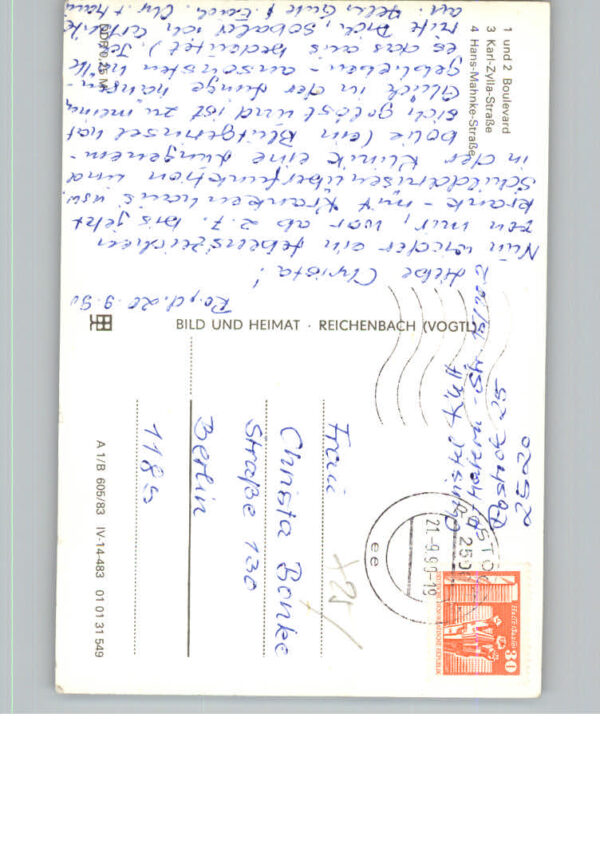 1 und 2 Boulevard
3 Karl-Zylla-Straße
4 Hans-Mahnke-Straße
20.9.90
Liebe Christa!
Nun wieder ein Lebenszeichen
von mir, war ab 2.7. bis jetzt
krank - mit Krankenhaus usw.
Schilddrüsenüberfunktion und
in der Klinik eine Lungenem-
bolie (ein Blutgerinsel hat
sich gelöst und ist zu meinem
Glück in der Lunge hängen-
geblieben - ansonsten
es das aus bedeutet). Ich
rufe Dich, sobald ich
an. Alles Gute f. Euch. Chr. + Hans
BILD UND HEIMAT · REICHENBACH (VOGTL)
Frau
Christa Benke
Straße 130
Berlin
1185
Rostock 25
2520
ROSTOCK
250
21-9.90-19
ee
30
DEUTSCHE DEMOKRATISCHE REPUBLIK
A 1/B 605/83 IV-14-483 01 01 31 549